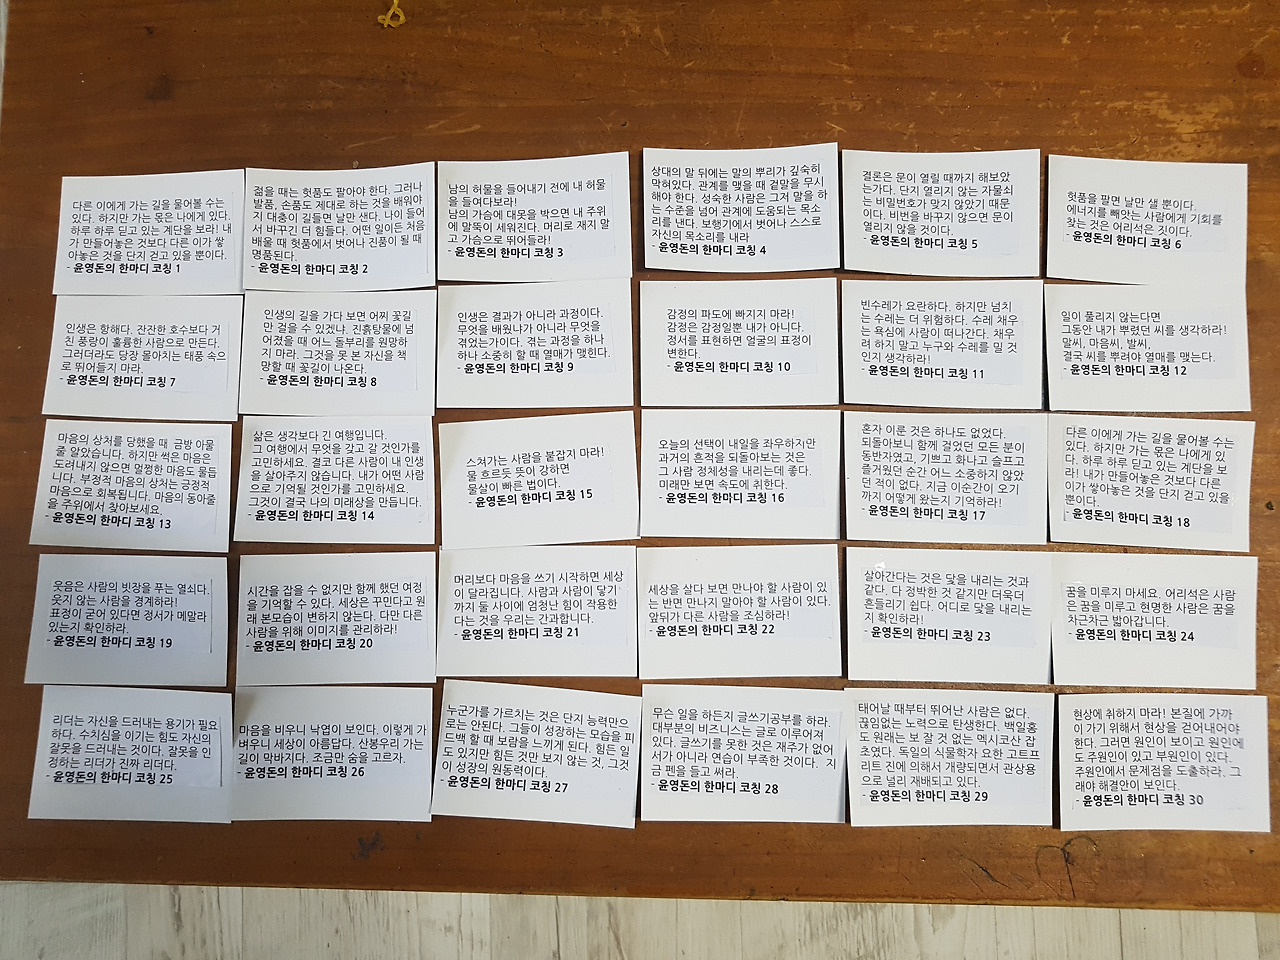 다른 이에게 가는 길을 물어볼 수는
있다. 하지만 가는 몫은 나에게 있다.
하루 하루 딛고 있는 계단을 보라! 내
가 만들어놓은 것보다 다른 이가 쌓
아놓은 것을 단지 걷고 있을 뿐이다.
- 윤영돈의 한마디 코칭 1
젊을 때는 헛품도 팔아야 한다. 그러나
발품, 손품도 제대로 하는 것을 배워야
지 대충이 길들면 날만 샌다. 나이 들어
서 바꾸긴 더 힘들다. 어떤 일이든 처음
배울 때 헛품에서 벗어나 진품이 될 때
명품된다.
- 윤영돈의 한마디 코칭 2
남의 허물을 들어내기 전에 내 허물
을 들여다보라!
남의 가슴에 대못을 박으면 내 주위
에 말뚝이 세워진다. 머리로 재지 말
고 가슴으로 뛰어들라!
- 윤영돈의 한마디 코칭 3
상대의 말 뒤에는 말의 뿌리가 깊숙히
막혀있다. 관계를 맺을 때 겉말을 무시
해야 한다. 성숙한 사람은 그저 말을 하
는 수준을 넘어 관계에 도움되는 목소
리를 낸다. 보행기에서 벗어나 스스로
자신의 목소리를 내라
- 윤영돈의 한마디 코칭 4
결론은 문이 열릴 때까지 해보았
는가다. 단지 열리지 않는 자물쇠
는 비밀번호가 맞지 않았기 때문
이다. 비번을 바꾸지 않으면 문이
열리지 않을 것이다.
- 윤영돈의 한마디 코칭 5
헛품을 팔면 날만 샐 뿐이다.
에너지를 빼앗는 사람에게 기회를
찾는 것은 어리석은 짓이다.
- 윤영돈의 한마디 코칭 6
인생은 항해다. 잔잔한 호수보다 거
친 풍랑이 훌륭한 사람으로 만든다.
그러더라도 당장 몰아치는 태풍 속으
로 뛰어들지 마라.
- 윤영돈의 한마디 코칭 7
인생의 길을 가다 보면 어찌 꽃길
만 걸을 수 있겠냐. 진흙탕물에 넘
어졌을 때 어느 돌부리를 원망하
지 마라. 그것을 못 본 자신을 책
망할 때 꽃길이 나온다.
- 윤영돈의 한마디 코칭 8
인생은 결과가 아니라 과정이다.
무엇을 배웠냐가 아니라 무엇을
겪었는가이다. 겪는 과정을 하나
하나 소중히 할 때 열매가 맺힌다.
- 윤영돈의 한마디 코칭 9
감정의 파도에 빠지지 마라!
감정은 감정일뿐 내가 아니다.
정서를 표현하면 얼굴의 표정이
변한다.
- 윤영돈의 한마디 코칭 10
빈수레가 요란하다. 하지만 넘치
는 수레는 더 위험하다. 수레 채우
는 욕심에 사람이 떠나간다. 채우
려 하지 말고 누구와 수레를 밀 것
인지 생각하라!
- 윤영돈의 한마디 코칭 11
일이 풀리지 않는다면
그동안 내가 뿌렸던 씨를 생각하라!
말씨, 마음씨, 발씨,
결국 씨를 뿌려야 열매를 맺는다.
- 윤영돈의 한마디 코칭 12
마음의 상처를 당했을 때 금방 아물
줄 알았습니다. 하지만 썩은 마음은
도려내지 않으면 멀쩡한 마음도 물듭
니다. 부정적 마음의 상처는 긍정적
마음으로 회복됩니다. 마음의 동아줄
을 주위에서 찾아보세요.
- 윤영돈의 한마디 코칭 13
삶은 생각보다 긴 여행입니다.
그 여행에서 무엇을 갖고 갈 것인가를
고민하세요. 결코 다른 사람이 내 인생
을 살아주지 않습니다. 내가 어떤 사람
으로 기억될 것인가를 고민하세요.
그것이 결국 나의 미래상을 만듭니다.
- 윤영돈의 한마디 코칭 14
스쳐가는 사람을 붙잡지 마라!
물 흐르듯 뜻이 강하면
물살이 빠른 법이다.
- 윤영돈의 한마디 코칭 15
오늘의 선택이 내일을 좌우하지만
과거의 흔적을 되돌아보는 것은
그 사람 정체성을 내리는데 좋다.
미래만 보면 속도에 취한다.
- 윤영돈의 한마디 코칭 16
혼자 이룬 것은 하나도 없었다.
되돌아보니 함께 걸었던 모든 분이
동반자였고, 기쁘고 화나고 슬프고
즐거웠던 순간 어느 소중하지 않았
던 적이 없다. 지금 이순간이 오기
까지 어떻게 왔는지 기억하라!
- 윤영돈의 한마디 코칭 17
다른 이에게 가는 길을 물어볼 수는
있다. 하지만 가는 몫은 나에게 있
다. 하루 하루 딛고 있는 계단을 보
라! 내가 만들어놓은 것보다 다른
이가 쌓아놓은 것을 단지 걷고 있을
뿐이다.
- 윤영돈의 한마디 코칭 18
웃음은 사람의 빗장을 푸는 열쇠다.
웃지 않는 사람을 경계하라!
표정이 굳어 있다면 정서가 메말라
있는지 확인하라.
- 윤영돈의 한마디 코칭 19
시간을 잡을 수 없지만 함께 했던 여정
을 기억할 수 있다. 세상은 꾸민다고 원
래 본모습이 변하지 않는다. 다만 다른
사람을 위해 이미지를 관리하라!
- 윤영돈의 한마디 코칭 20
머리보다 마음을 쓰기 시작하면 세상
이 달라집니다. 사람과 사람이 닿기
까지 둘 사이에 엄청난 힘이 작용한
다는 것을 우리는 간과합니다.
- 윤영돈의 한마디 코칭 21
세상을 살다 보면 만나야 할 사람이 있
는 반면 만나지 말아야 할 사람이 있다.
앞뒤가 다른 사람을 조심하라!
- 윤영돈의 한마디 코칭 22
살아간다는 것은 닻을 내리는 것과
같다. 다 정박한 것 같지만 더욱더
흔들리기 쉽다. 어디로 닻을 내리는
지 확인하라!
- 윤영돈의 한마디 코칭 23
꿈을 미루지 마세요. 어리석은 사람
은 꿈을 미루고 현명한 사람은 꿈을
차근차근 밟아갑니다.
- 윤영돈의 한마디 코칭 24
리더는 자신을 드러내는 용기가 필요
하다. 수치심을 이기는 힘도 자신의
잘못을 드러내는 것이다. 잘못을 인
정하는 리더가 진짜 리더다.
- 윤영돈의 한마디 코칭 25
마음을 비우니 낙엽이 보인다. 이렇게 가
벼우니 세상이 아름답다. 산봉우리 가는
길이 막바지다. 조금만 숨을 고르자.
- 윤영돈의 한마디 코칭 26
누군가를 가르치는 것은 단지 능력만으
로는 안된다. 그들이 성장하는 모습을 피
드백 할 때 보람을 느끼게 된다. 힘든 일
도 있지만 힘든 것만 보지 않는 것, 그것
이 성장의 원동력이다.
- 윤영돈의 한마디 코칭 27
무슨 일을 하든지 글쓰기공부를 하라.
대부분의 비즈니스는 글로 이루어져
있다. 글쓰기를 못한 것은 재주가 없어
서가 아니라 연습이 부족한 것이다. 지
금 펜을 들고 써라.
- 윤영돈의 한마디 코칭 28
태어날 때부터 뛰어난 사람은 없다.
끊임없는 노력으로 탄생한다. 백일홍
도 원래는 보 잘 것 없는 멕시코산 잡
초였다. 독일의 식물학자 요한 고트프
리트 진에 의해서 개량되면서 관상용
으로 널리 재배되고 있다.
- 윤영돈의 한마디 코칭 29
현상에 취하지 마라! 본질에 가까
이 가기 위해서 현상을 걷어내어야
한다. 그러면 원인이 보이고 원인에
도 주원인이 있고 부원인이 있다.
주원인에서 문제점을 도출하라. 그
래야 해결안이 보인다.
- 윤영돈의 한마디 코칭 30